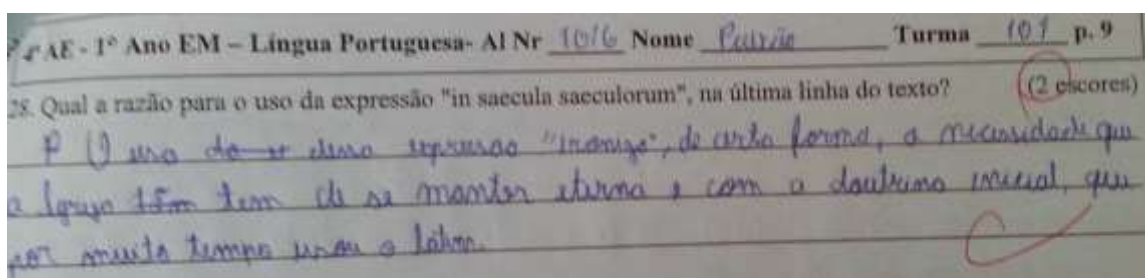 4ª AE - 1º Ano EM – Língua Portuguesa- Al Nr 1016 Nome Turma 101 p. 9
28. Qual a razão para o uso da expressão "in saecula saeculorum", na última linha do texto? (2 escores)
R O uso dessa expressão "ironiza", de certa forma, a necessidade que
a Igreja tem de se manter eterna e com a doutrina inicial, que
por muito tempo usou o latim.